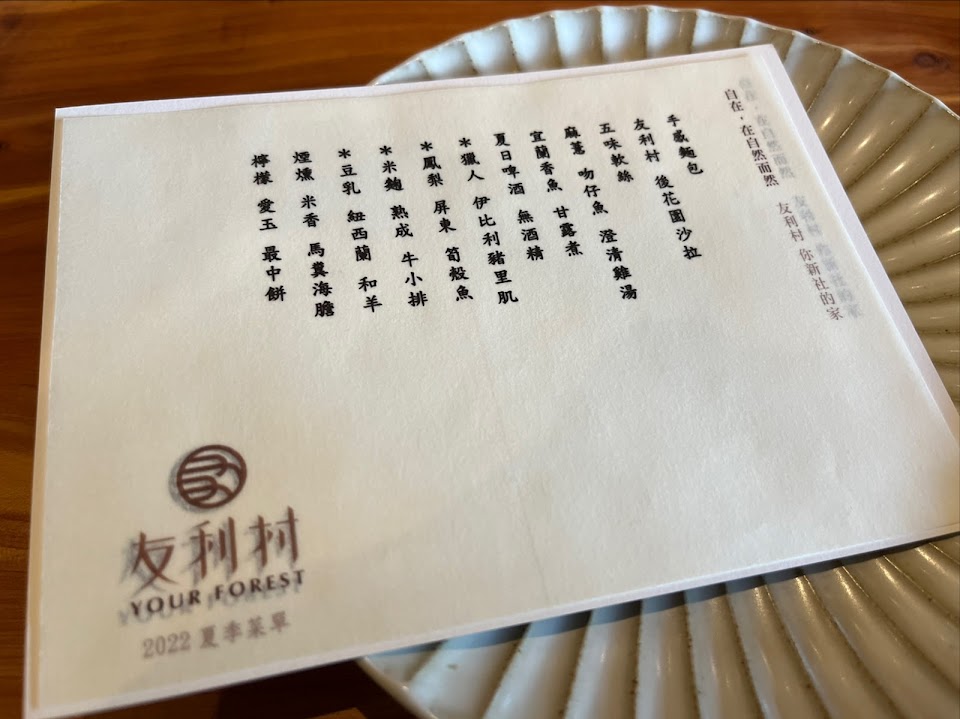 自在，在自然而然　友利村 你新社的家
手感麵包
友利村　後花園沙拉
五味軟絲
麻薏　吻仔魚　澄清雞湯
宜蘭香魚　甘露煮
夏日啤酒　無酒精
＊獵人　伊比利豬里肌
＊鳳梨　屏東　筍殼魚
＊米麴　熟成　牛小排
＊豆乳　紐西蘭　和羊
煙燻　米香　馬糞海膽
檸檬　愛玉　最中餅
友利村
YOUR FOREST
2022 夏季菜單